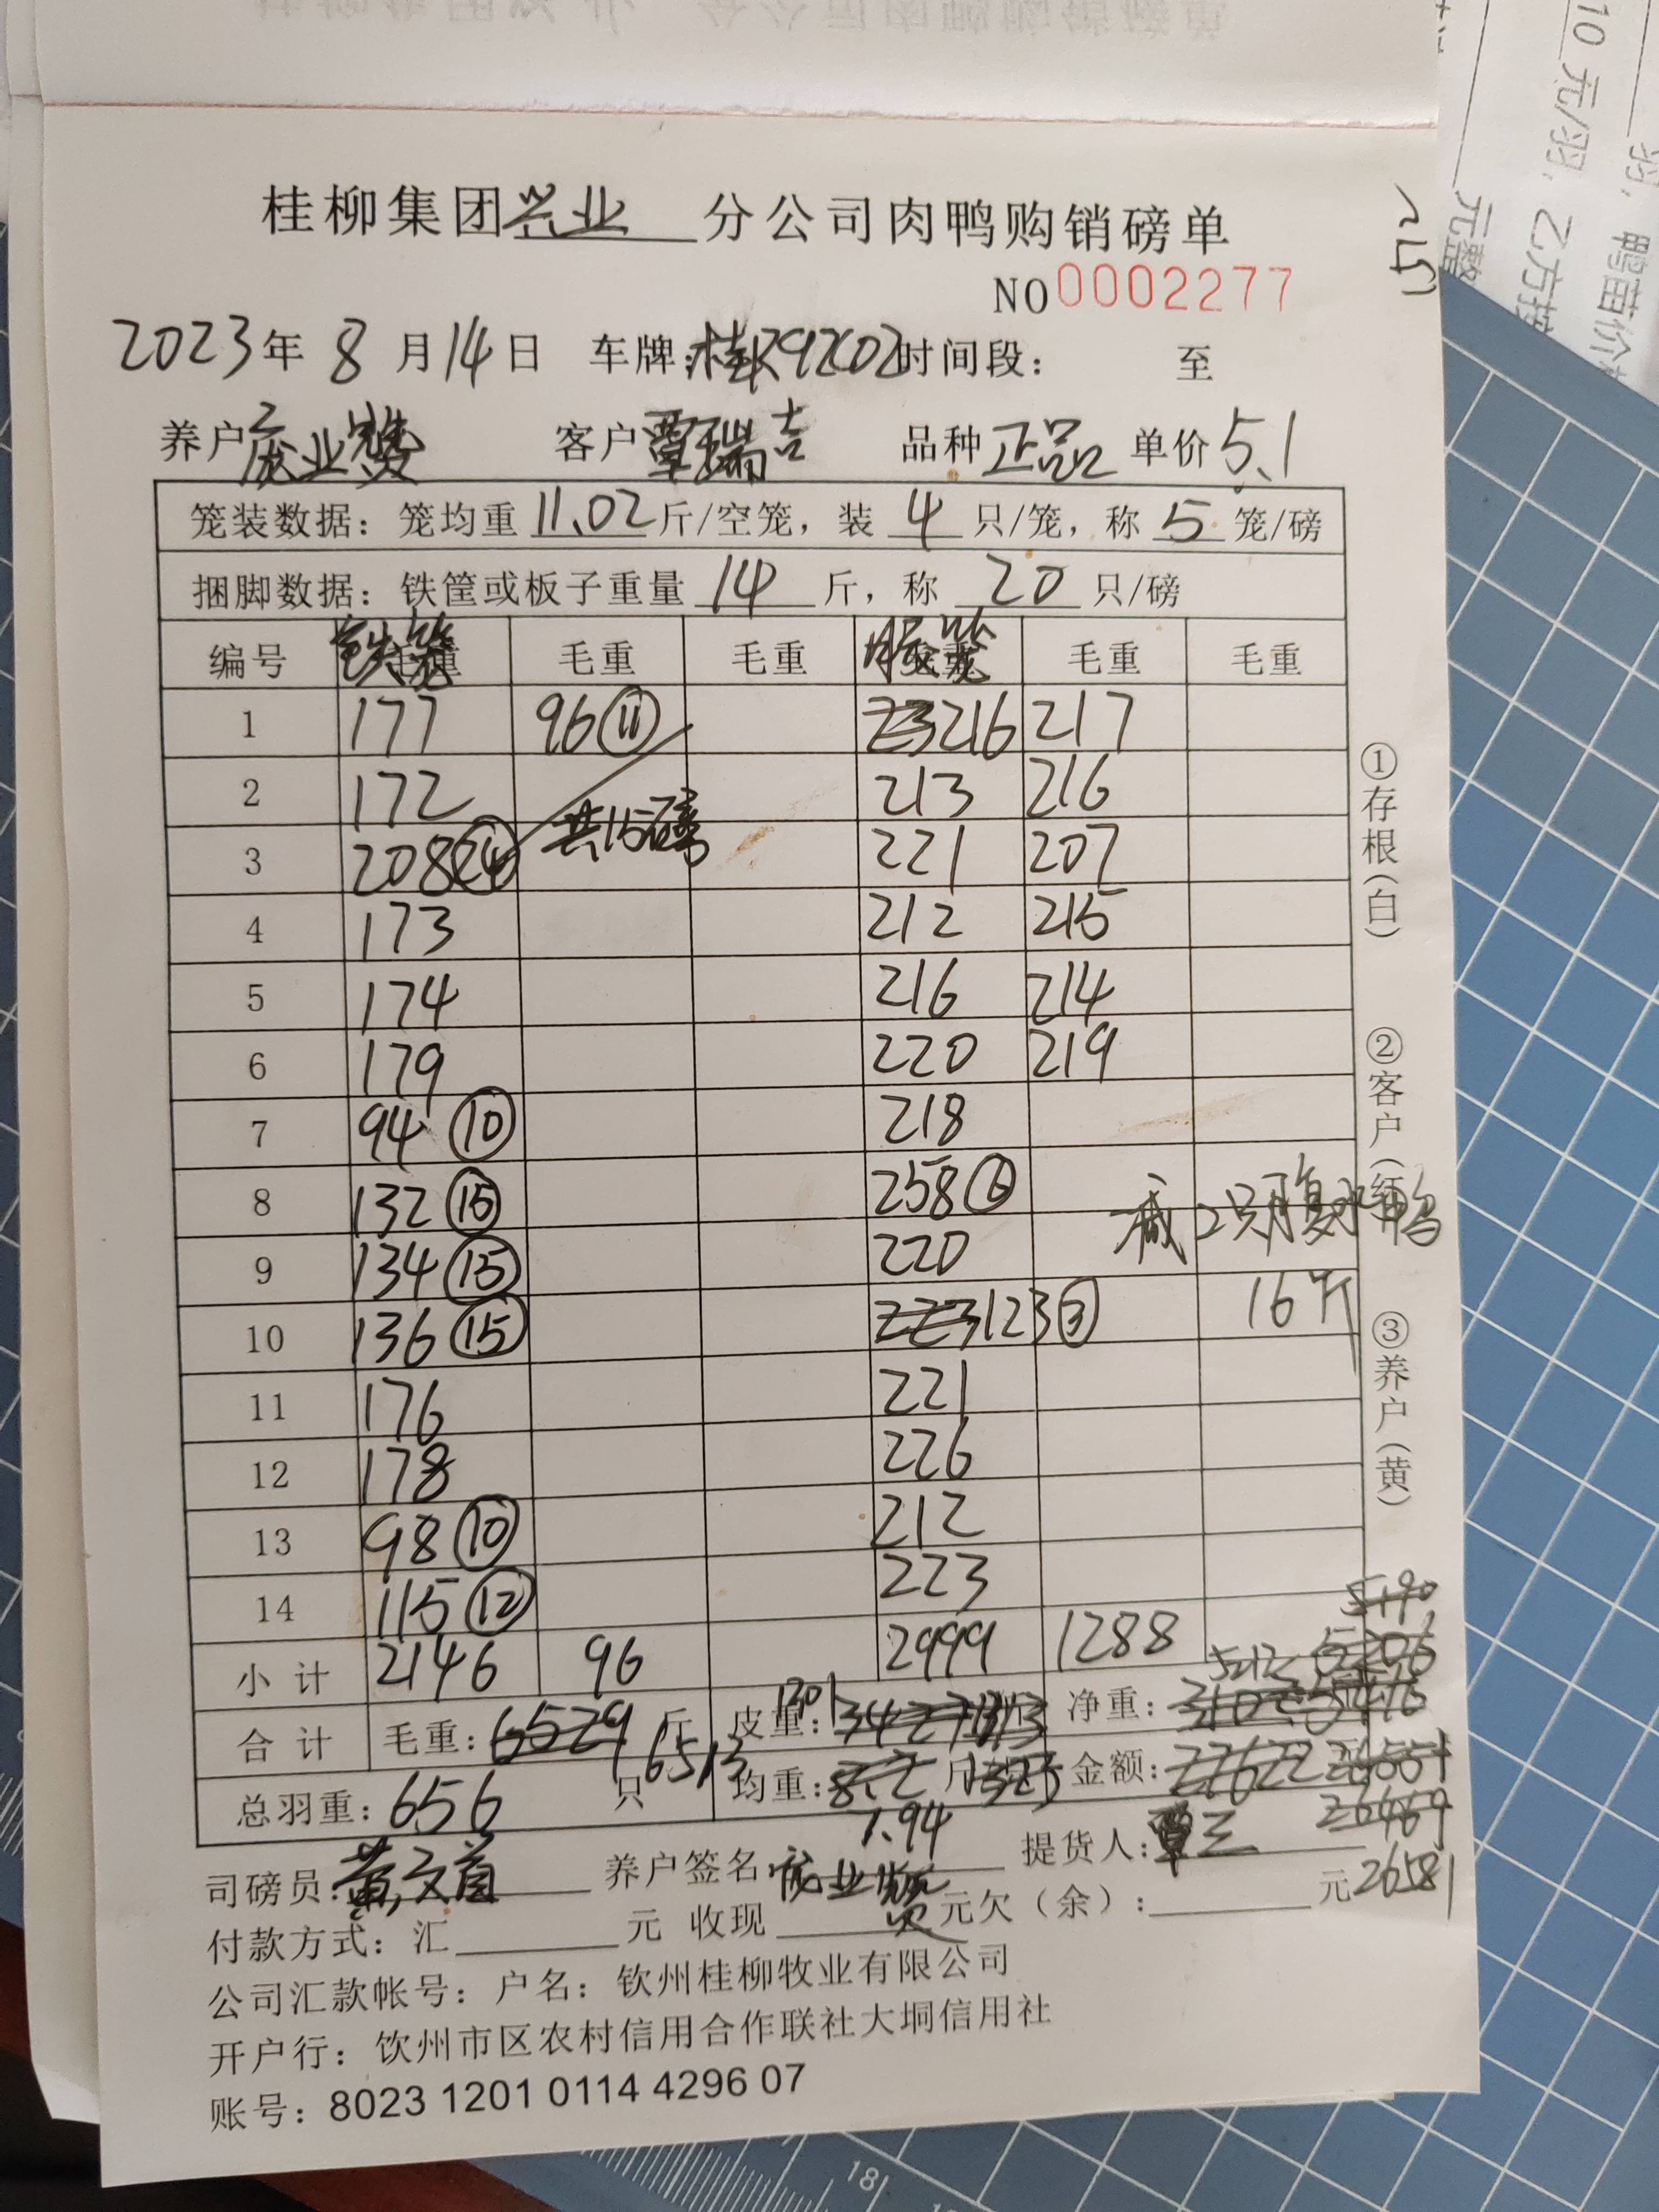 桂柳集团兴业分公司肉鸭购销磅单
NO 0002277
2023年8月14日 车牌:桂 时间段: 至
养户 庞业赞 客户 覃瑞吉 品种 正品 单价 5.1
笼装数据: 笼均重 11.02 斤/空笼, 装 4 只/笼, 称 5 笼/磅
捆脚数据: 铁筐或板子重量 14 斤, 称 20 只/磅
编号 铁笼 毛重 毛重 胶笼 毛重 毛重
1 177 96⑪ 216 217
2 172 共15磅 213 216
3 208㉔ 221 207
4 173 212 215
5 174 216 214
6 179 220 219
7 94⑩ 218
8 132⑮ 258⑥ 减2只腹水鸭
9 134⑮ 220
10 136⑮ 123③ 16斤
11 176 221
12 178 226
13 98⑩ 212
14 115⑫ 223
5190
小计 2146 96 2999 1288 5212 5206
合计 毛重: 6529斤 6513 皮重: 1301 净重:
总羽重: 656 只 均重: 8.2 1323 金额: 22622
7.94 26469
司磅员: 黄文首 养户签名: 庞业赞 提货人: 覃三
付款方式: 汇 元 收现 元欠(余): 元 26581
公司汇款帐号: 户名: 钦州桂柳牧业有限公司
开户行: 钦州市区农村信用合作联社大垌信用社
账号: 8023 1201 0114 4296 07
①存根(白)
②客户(红)
③养户(黄)
10 元/羽, 乙方按
羽, 鸭苗价
元整